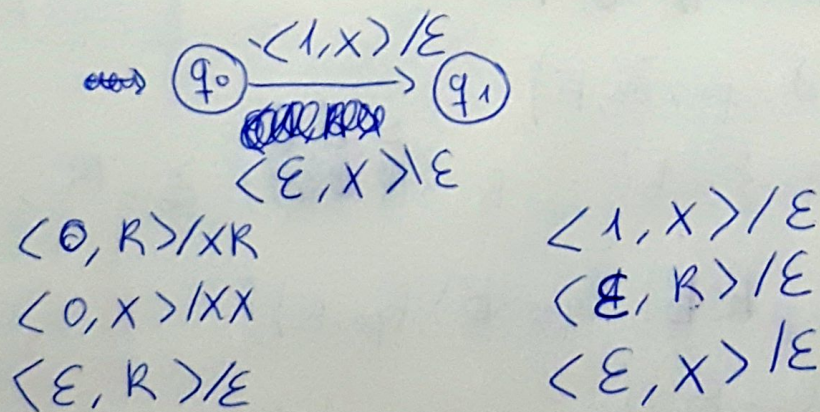 <1,X>/ε
q0 q1
<ε,X>\ε
<0,R>/XR
<0,X>/XX
<ε,R>/ε
<1,X>/ε
<ε,R>/ε
<ε,X>/ε